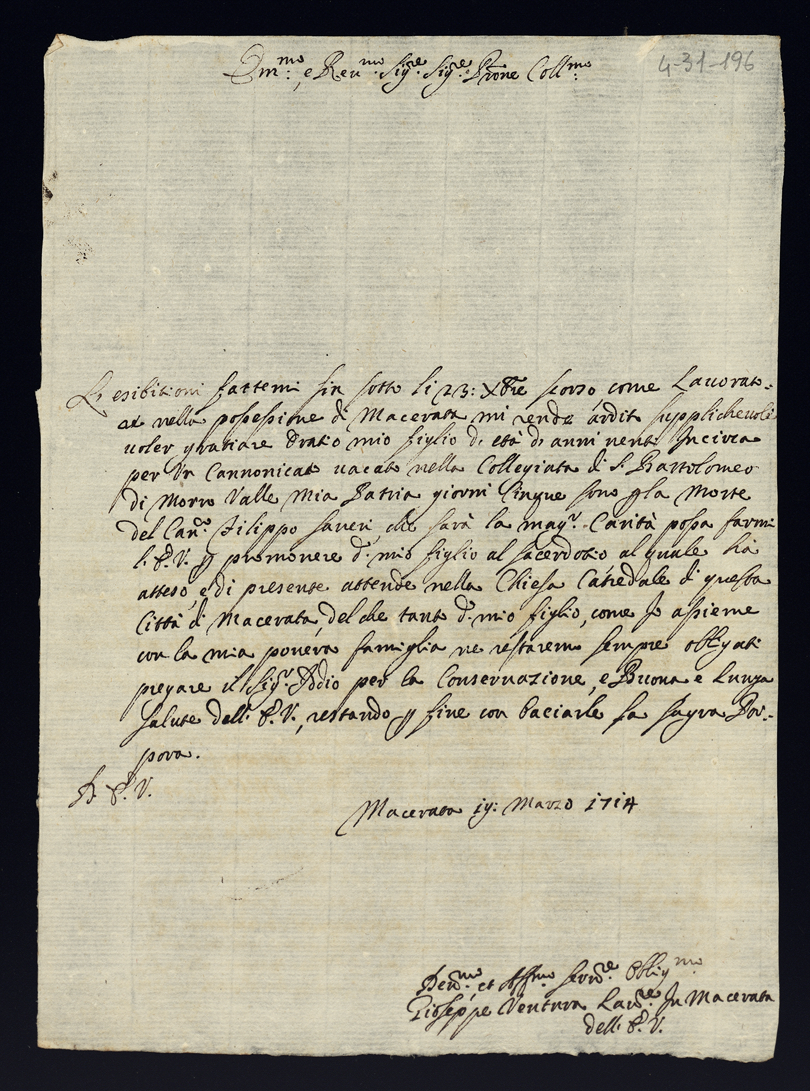 Em.mo: e Reu.mo Sig.re Sig.re Prone Coll.mo:
4-31-196
L'esibitioni fattemi sin sotto li 23: Xbre scorso come Lauorato-
re nella possessione di Macerata mi rende ardito supplicheuole
uoler gratiare Oratio mio figlio di età di anni uenti Incirca
per Un Cannonicato uacato nella Collegiata di S. Bartolomeo
di Morro Valle mia Patria giorni Cinque sono p la Morte
del Can.co Filippo Saueri, che sarà la mag.r Carità possa farmi
l'E.V. p promouere d.o mio figlio al sacerdotio al quale hà
atteso, e di presente attende nella Chiesa Catedale di questa
Città di Macerata, del che tanto d.o mio figlio, come Io assieme
con la mia pouera famiglia ne restaremo sempre obligati
pregare il Sig.r Iddio per la Conseruazione, e Buona e Lunga
salute dell'E.V., restando p fine con baciarle la sagra Por-
pora.
D. E.V.
Macerata 19: Marzo 1714
Deu.mo: et Aff.mo Seru.re Oblig.mo
Gioseppe Ventura Lau.re In Macerata
dell'E.V.